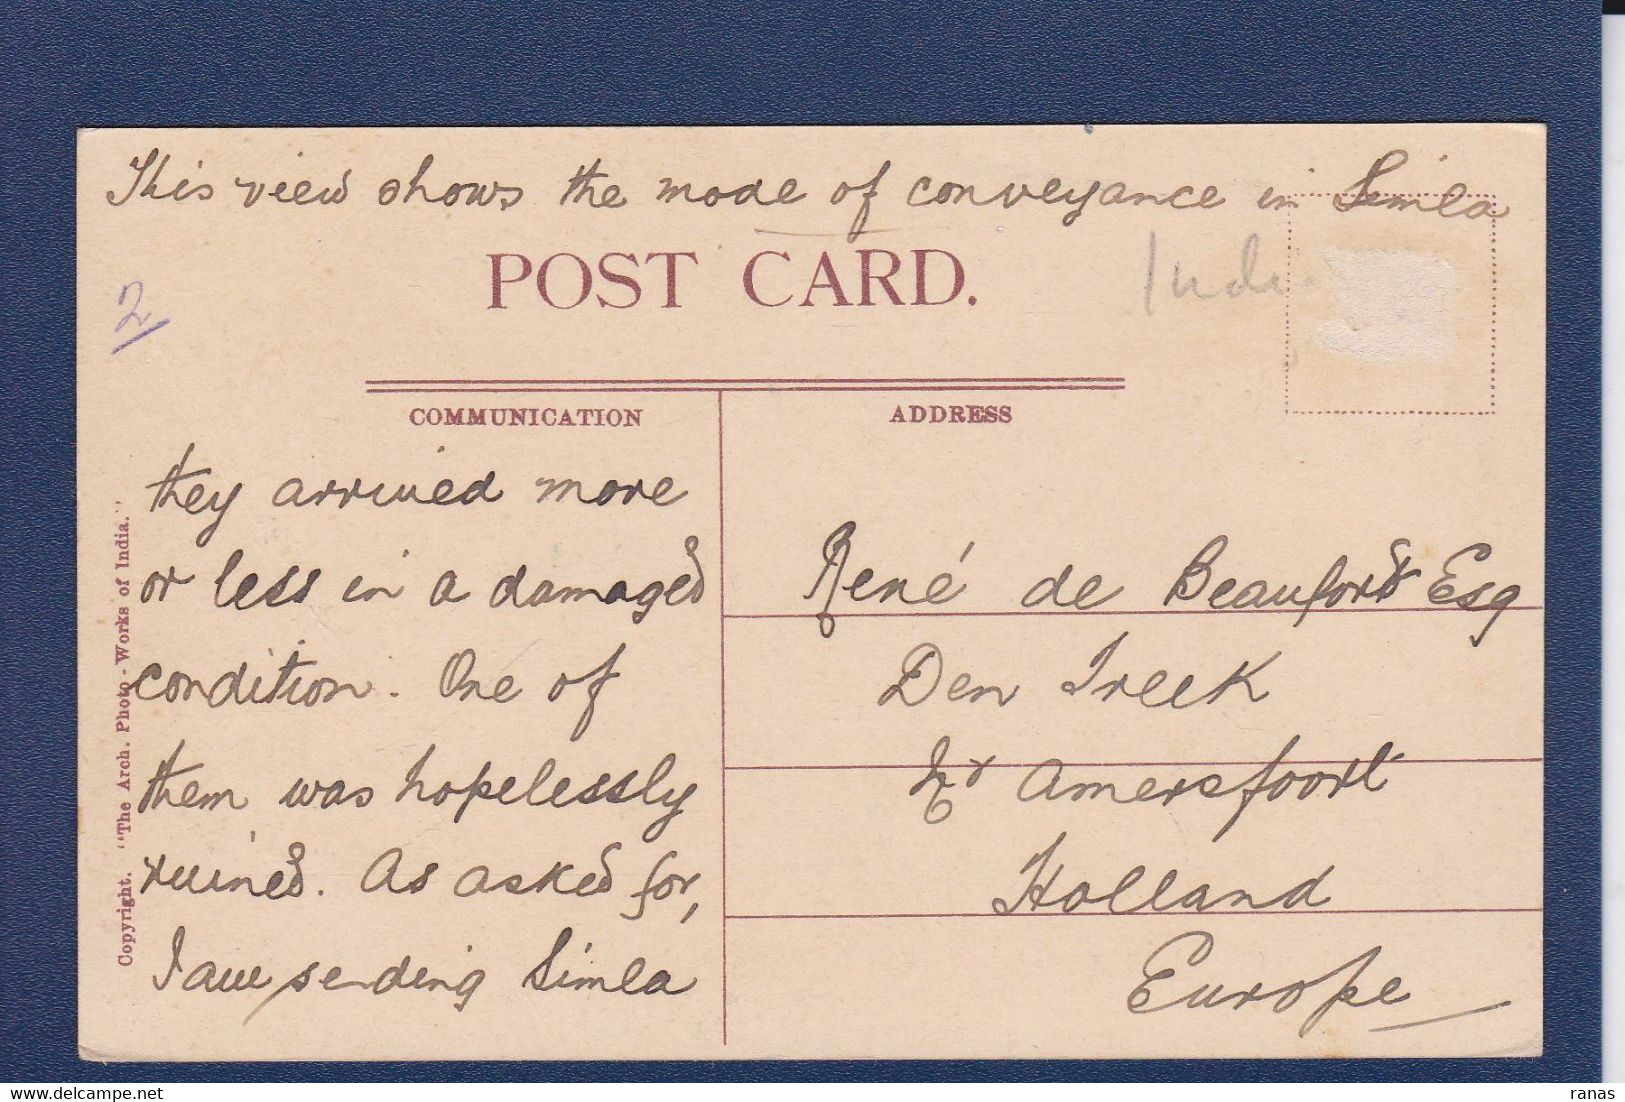 This view shows the mode of conveyance in Simla
POST CARD.
Indi
2
COMMUNICATION
ADDRESS
they arrived more
or less in a damaged
condition. One of
them was hopelessly
ruined. As asked for,
I am sending Simla
René de Beaufort Esq
Den Treek
nr Amersfoort
Holland
Europe
Copyright. "The Arch. Photo-Works of India."
ranas